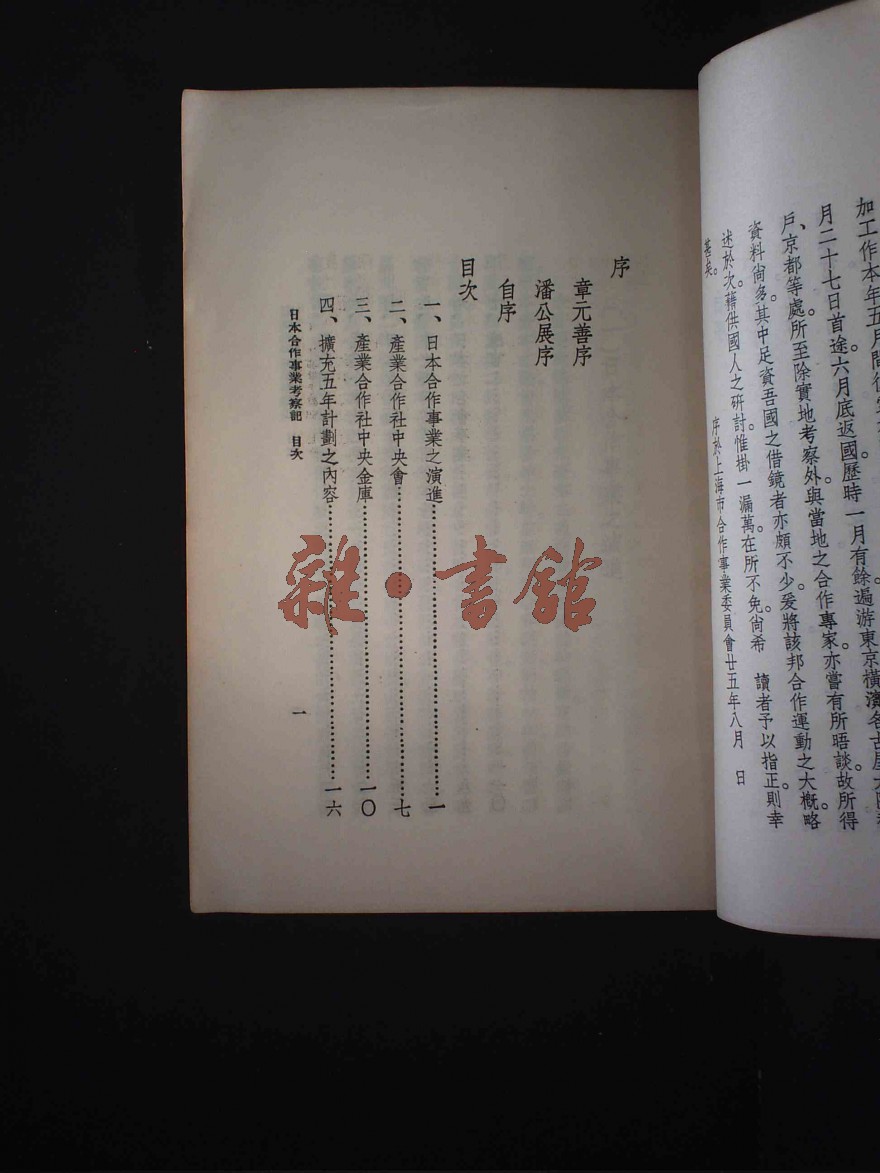 加工作本年五月間
月二十七日首途六月底返國歷時一月有餘遍游東京橫濱名古屋大阪
戶、京都等處。所至除實地考察外與當地之合作專家亦嘗有所晤談故所得
資料尙多。其中足資吾國之借鏡者亦頗不少爰將該邦合作運動之大概略
述於次。藉供國人之硏討惟掛一漏萬在所不免。尙希　讀者予以指正則幸
甚矣。
序於上海市合作事業委員會廿五年八月　日
序
章元善序
潘公展序
自序
目次
一、日本合作事業之演進……………………一
二、產業合作社中央會……………………七
三、產業合作社中央金庫……………………一〇
四、擴充五年計劃之內容……………………一六
日本合作事業考察記　目次
一
雜·書館